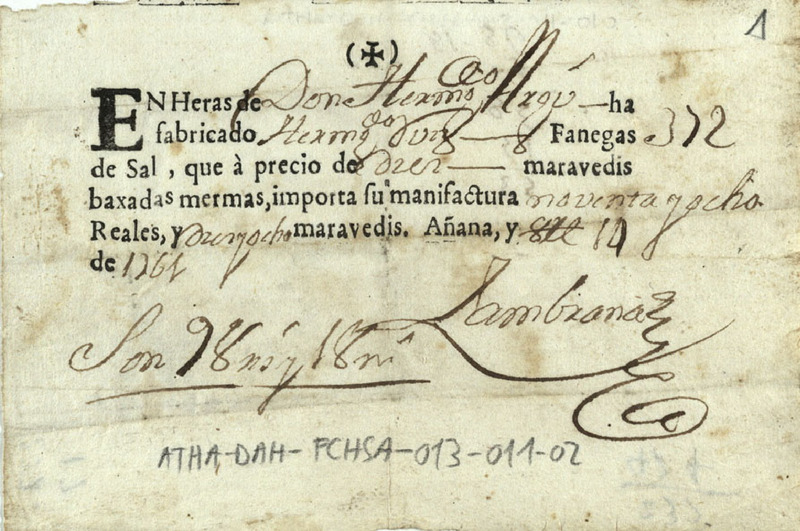 1
(✠)
EN Heras de Don Herm.do Arg.s ha
fabricado Herm.do Ruiz Fanegas 372
de Sal, que à precio de diez maravedis
baxadas mermas, importa su manifactura noventa y ocho
Reales, y diez y ocho maravedis. Añana, y 14
de 1761
Zambrana
Son 98 rs y 18 ms
ATHA-DAH-FCHSA-013-011-02